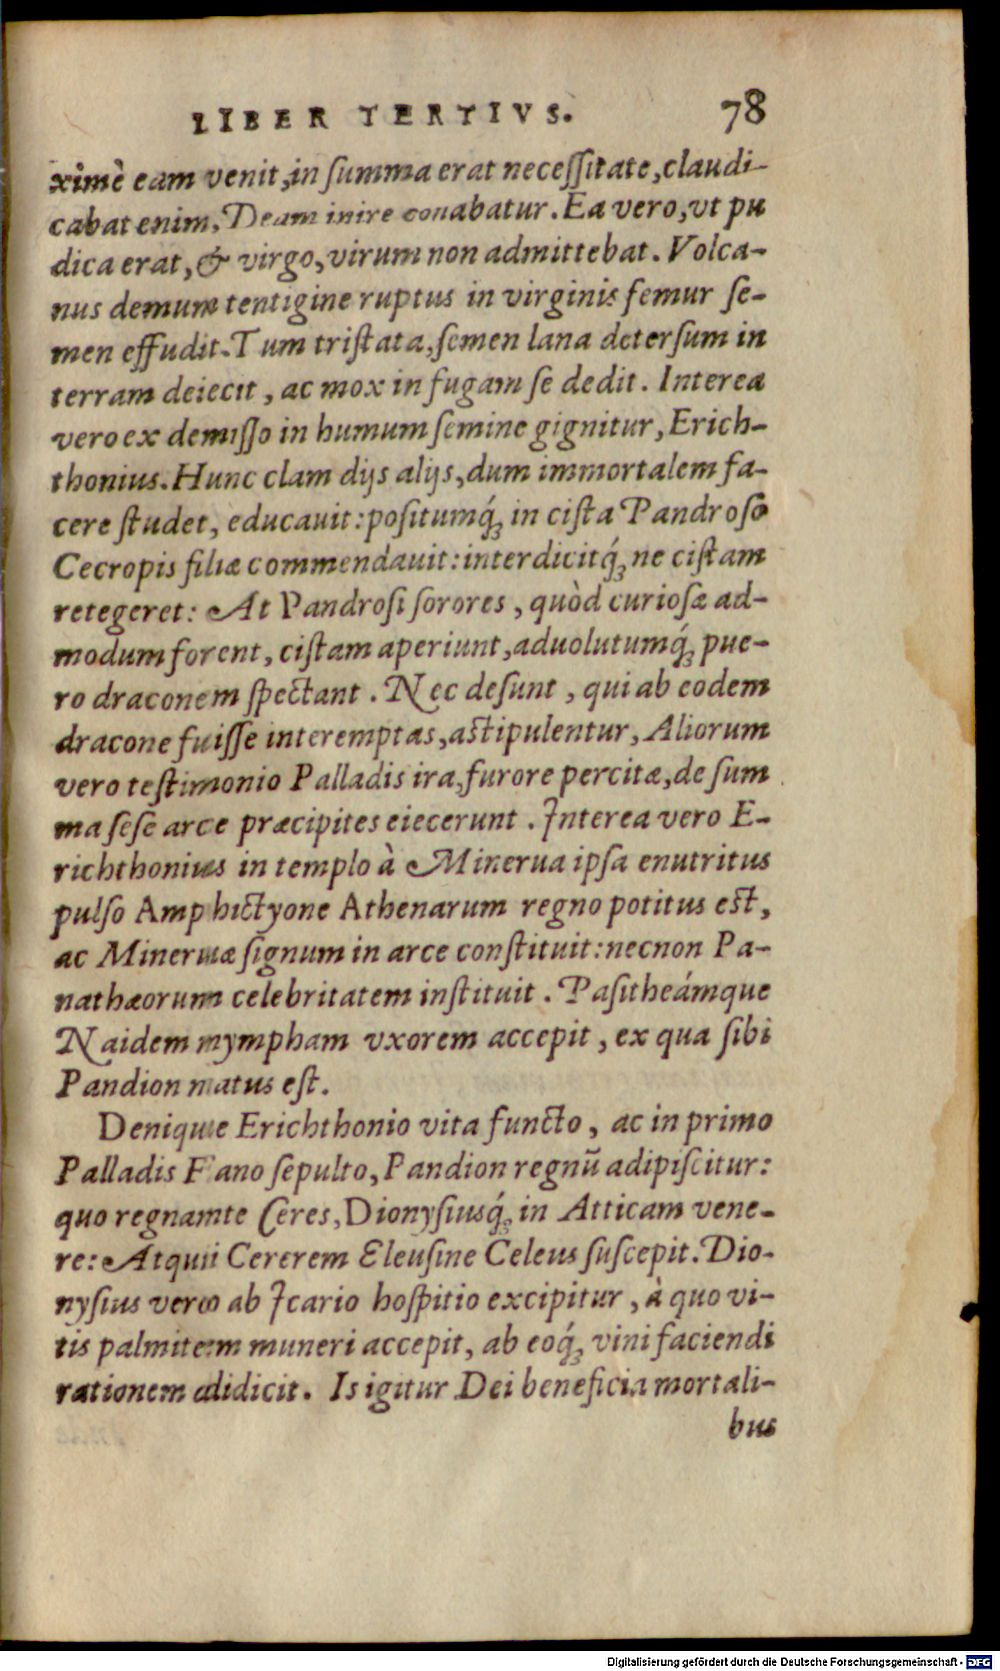 LIBER TERTIVS. 78
ximè eam venit, in ſumma erat neceſſitate, claudi-
cabat enim, Deam inire conabatur. Ea vero, vt pu
dica erat, & virgo, virum non admittebat. Volca-
nus demum tentigine ruptus in virginis femur ſe-
men effudit. Tum triſtata, ſemen lana deterſum in
terram deiecit, ac mox in fugam ſe dedit. Interea
vero ex demiſſo in humum ſemine gignitur, Erich-
thonius. Hunc clam dijs alijs, dum immortalem fa-
cere ſtudet, educauit: poſitumq́ꝫ in ciſta Pandroſo
Cecropis filiæ commendauit: interdicitq́ꝫ ne ciſtam
retegeret: At Pandroſi ſorores, quòd curioſæ ad-
modum forent, ciſtam aperiunt, aduolutumq́ꝫ pue-
ro draconem ſpectant. Nec deſunt, qui ab eodem
dracone fuiſſe interemptas, aſtipulentur, Aliorum
vero teſtimonio Palladis ira, furore percitæ, de ſum
ma ſeſe arce præcipites eiecerunt. Interea vero E-
richthonius in templo à Minerua ipſa enutritus
pulſo Amphictyone Athenarum regno potitus eſt,
ac Mineruæ ſignum in arce conſtituit: necnon Pa-
nathæorum celebritatem inſtituit. Paſitheámque
Naidem nympham vxorem accepit, ex qua ſibi
Pandion natus eſt.
Denique Erichthonio vita functo, ac in primo
Palladis Fano ſepulto, Pandion regnũ adipiſcitur:
quo regnante Ceres, Dionyſiusq́ꝫ in Atticam vene-
re: Atqui Cererem Eleuſine Celeus ſuſcepit. Dio-
nyſius vero ab Icario hoſpitio excipitur, à quo vi-
tis palmitem muneri accepit, ab eoq́ꝫ vini faciendi
rationem didicit. Is igitur Dei beneficia mortali-
bus
Digitalisierung gefördert durch die Deutsche Forschungsgemeinschaft - DFG